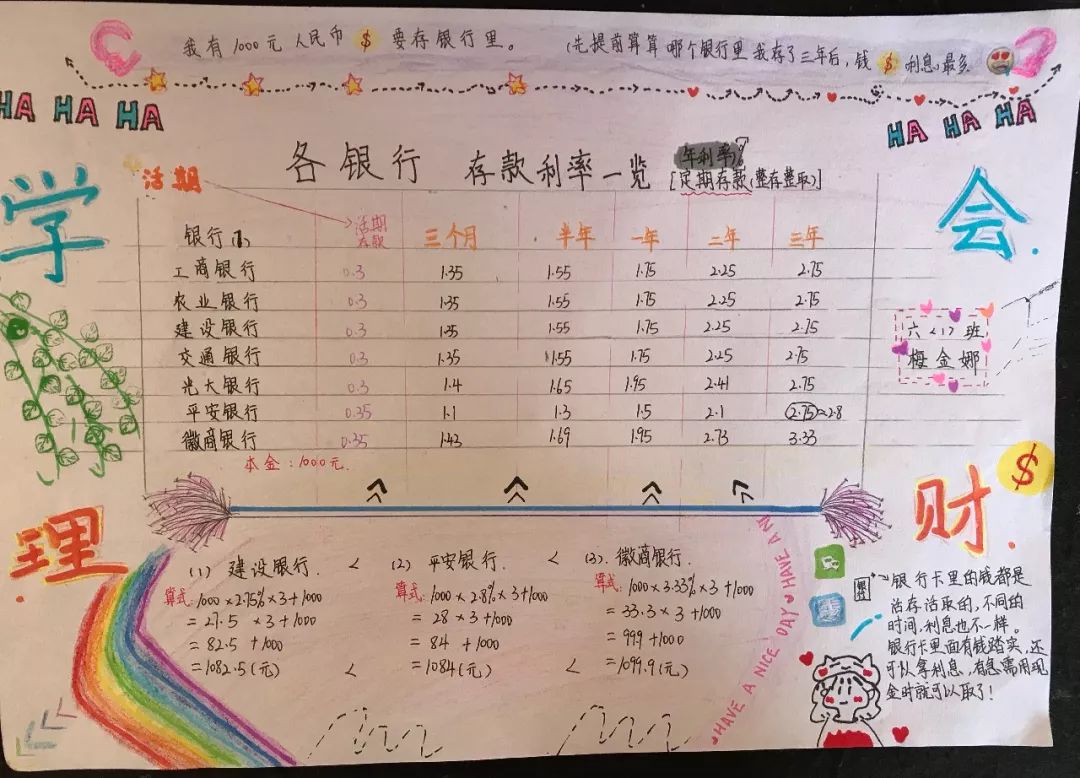 我有1000元人民币$要存银行里。 (先提前算算哪个银行里我存了三年后,钱$利息最多
HA HA HA
HA HA HA
学会
理财
各银行 存款利率一览
年利率?
[定期存款(整存整取)]
活期
银行(1) 活期存款 三个月 半年 一年 二年 三年
工商银行 0.3 1.35 1.55 1.75 2.25 2.75
农业银行 0.3 1.35 1.55 1.75 2.25 2.75
建设银行 0.3 1.35 1.55 1.75 2.25 2.75
交通银行 0.3 1.35 1.55 1.75 2.25 2.75
光大银行 0.3 1.4 1.65 1.95 2.41 2.75
平安银行 0.35 1.1 1.3 1.5 2.1 2.75≈2.8
徽商银行 0.35 1.43 1.69 1.95 2.73 3.33
本金:1000元.
六<1>班
梅金娜
$
(1) 建设银行. <
算式:1000×2.75%×3+1000
=27.5×3+1000
=82.5+1000
=1082.5(元) <
(2) 平安银行. <
算式:1000×2.8%×3+1000
=28×3+1000
=84+1000
=1084(元) <
(3). 徽商银行.
算式:1000×3.33%×3+1000
=33.3×3+1000
=99.9+1000
=1099.9(元)
HAVE A NICE DAY HAVE A NI
银行卡里的钱都是
活存活取的,不同的
时间,利息也不一样。
银行卡里面有钱踏实,还
可以拿利息,有急需用现
金时就可以取了!